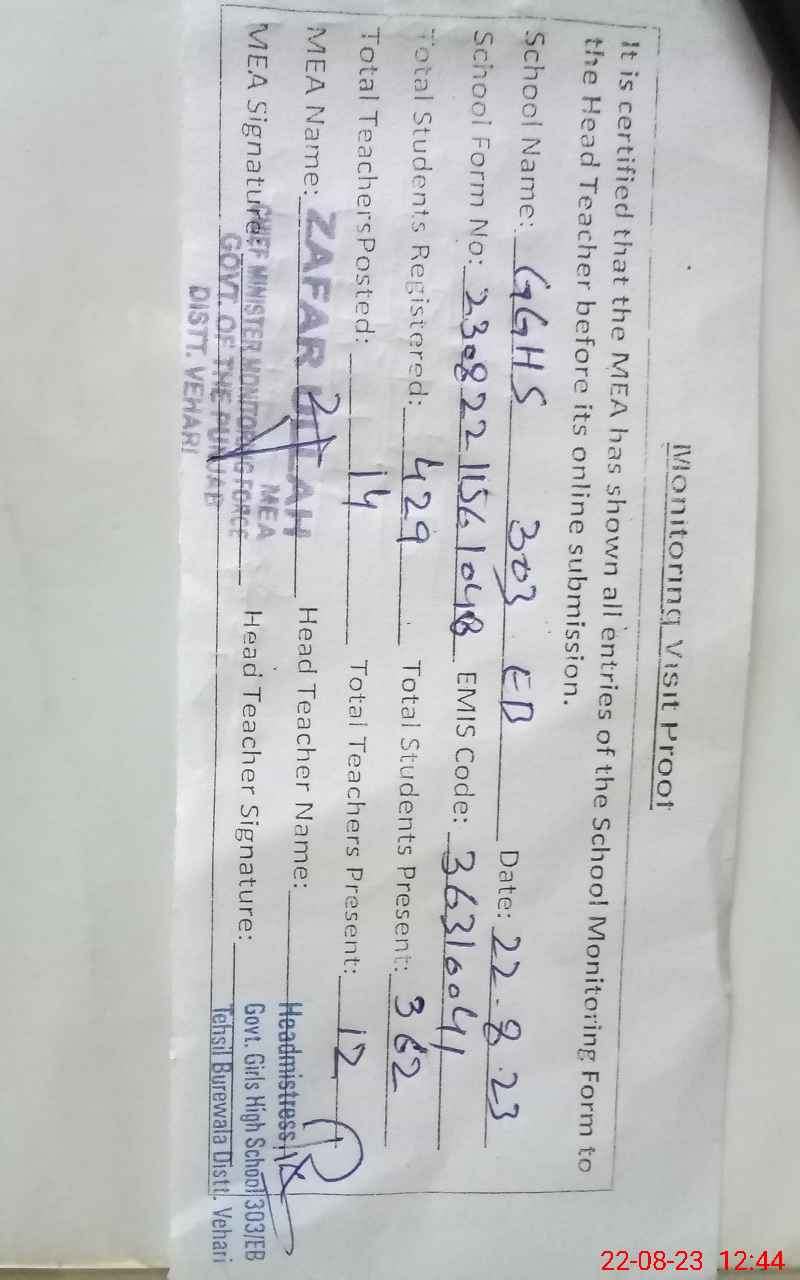 Monitoring Visit Proof
It is certified that the MEA has shown all entries of the School Monitoring Form to
the Head Teacher before its online submission.
School Name: GGHS 303 EB Date: 22-8-23
School Form No: 230822 11561048 EMIS Code: 36310041
Total Students Registered: 429 Total Students Present: 362
Total TeachersPosted: 14 Total Teachers Present: 12
MEA Name: ZAFAR ULLAH Head Teacher Name: Headmistress
MEA
MEA Signature: Head Teacher Signature: Govt. Girls High School 303/EB
CHIEF MINISTER MONITORING FORCE
GOVT. OF THE PUNJAB Tehsil Burewala Distt. Vehari
DISTT. VEHARI
22-08-23 12:44